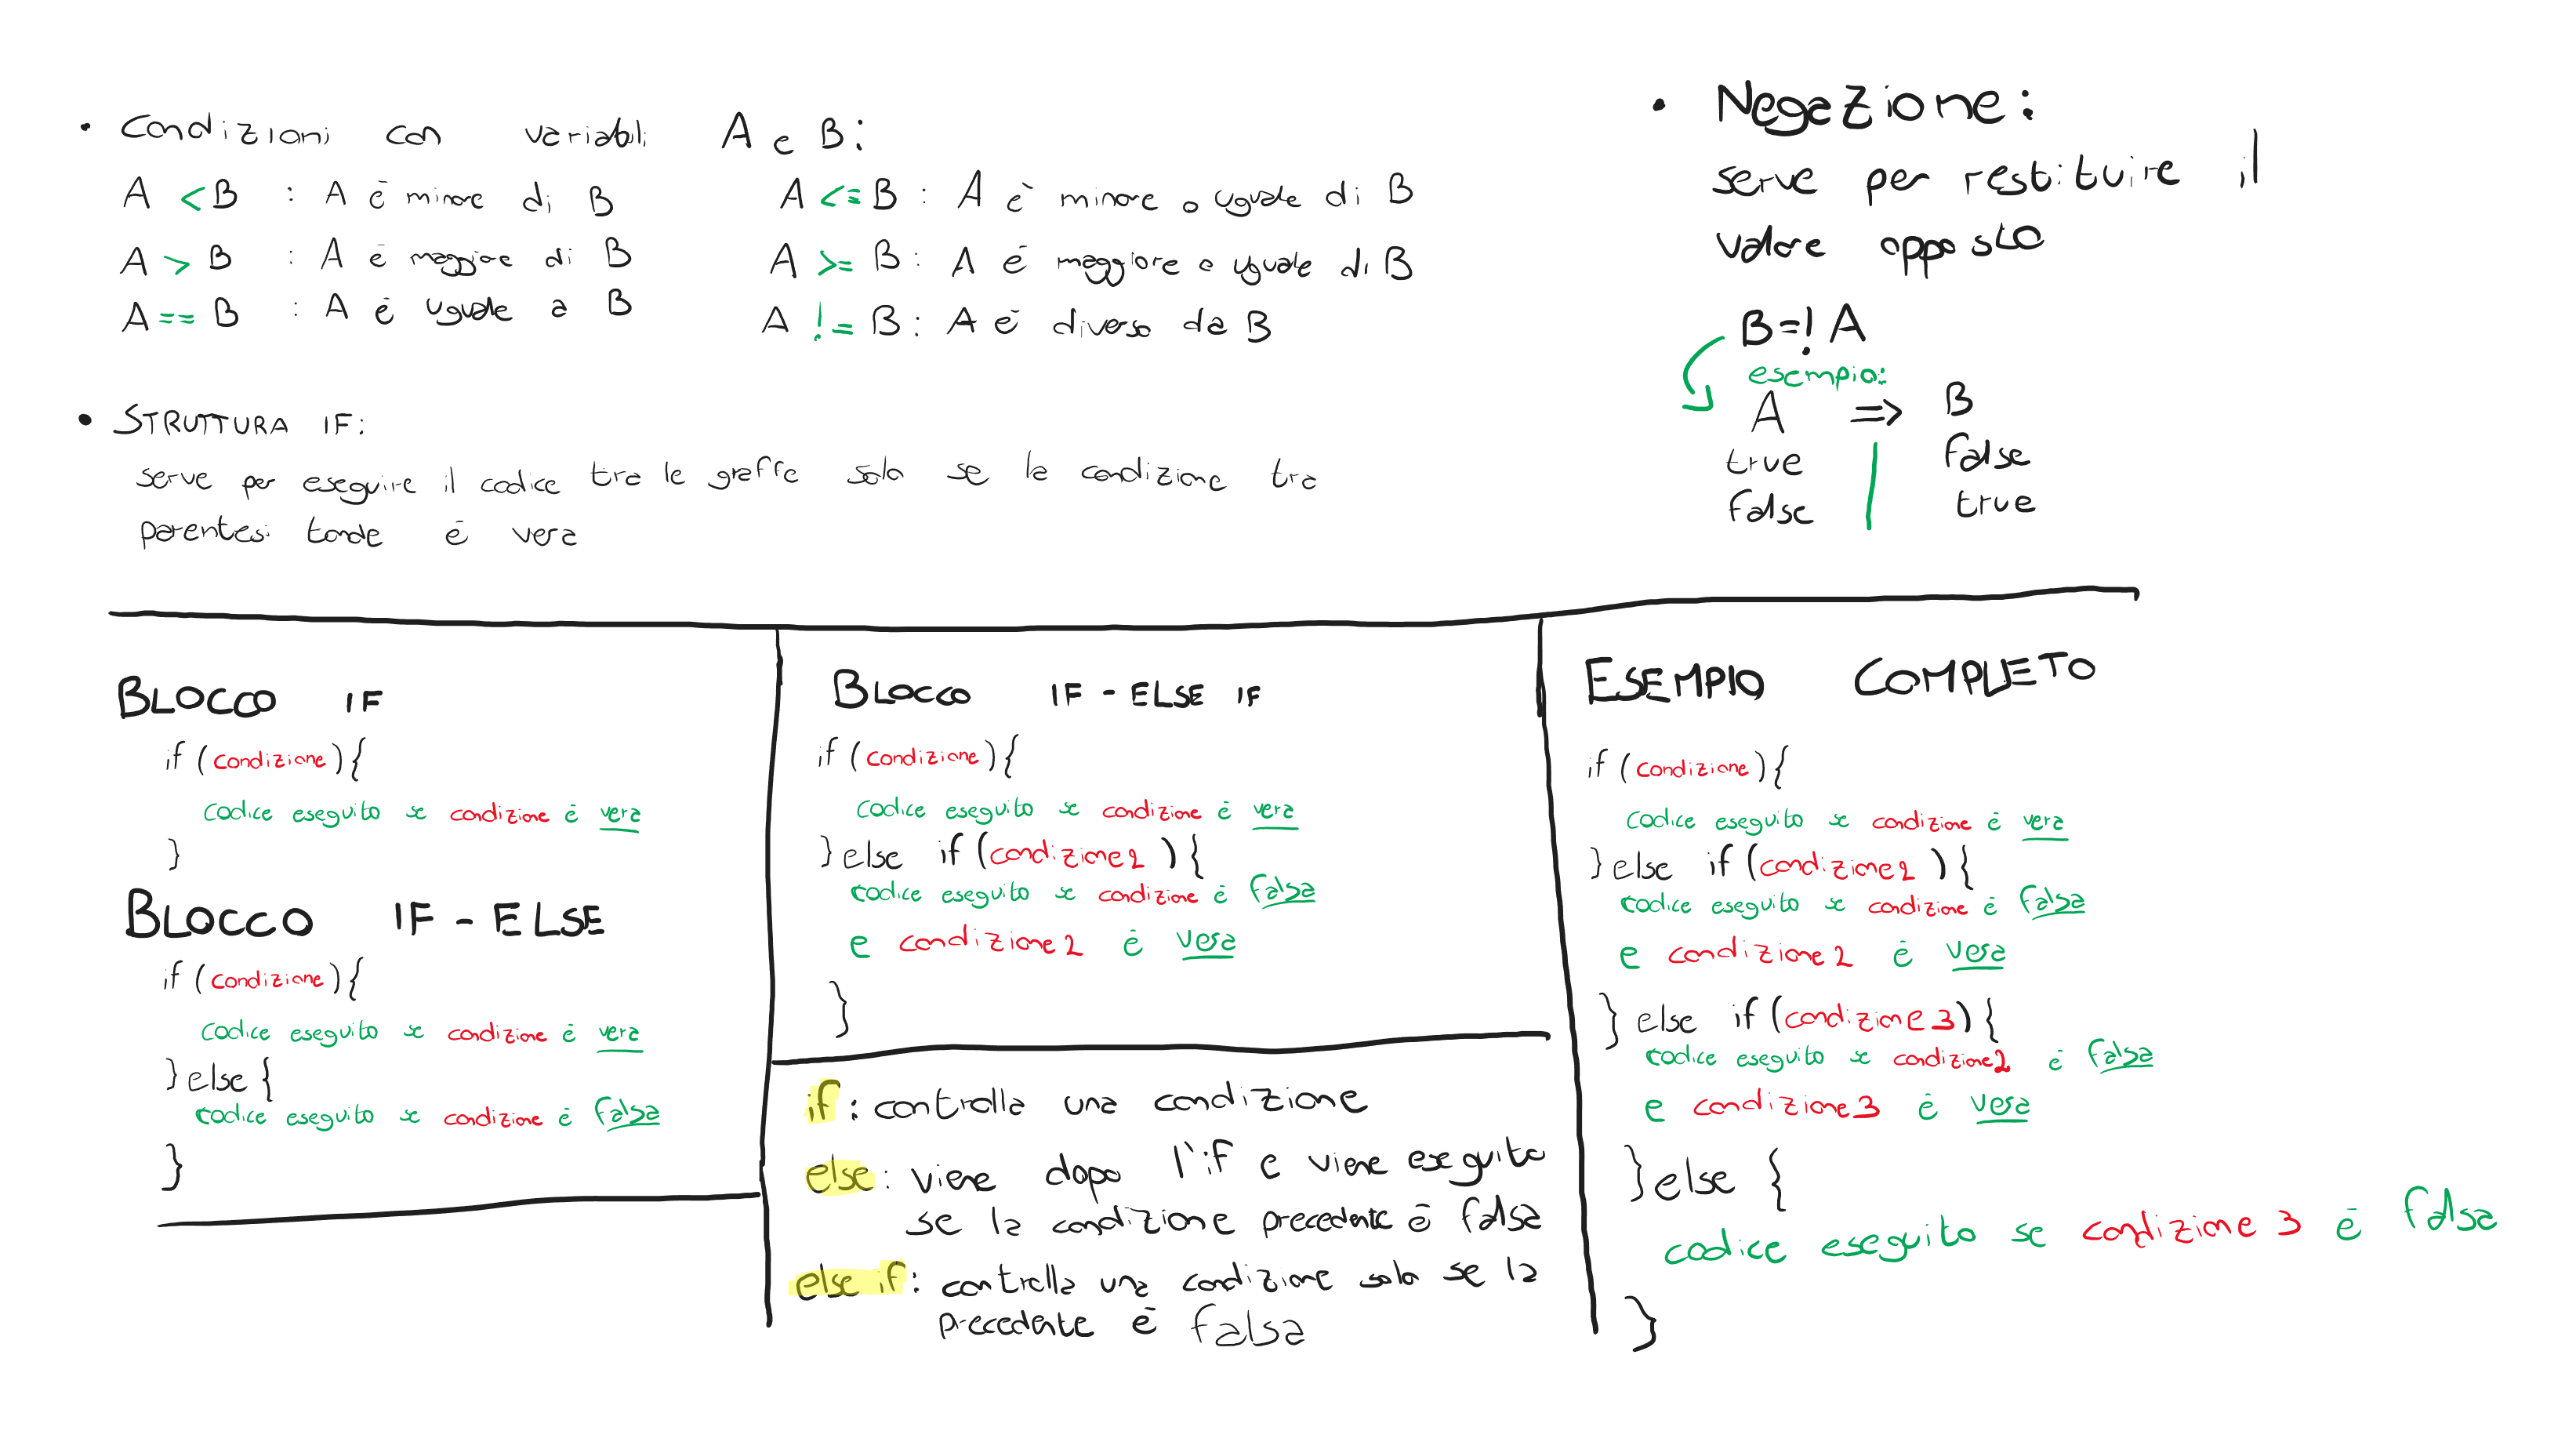 • Condizioni con variabili A e B:
A < B : A è minore di B
A > B : A è maggiore di B
A == B : A è uguale a B
A <= B : A è minore o uguale di B
A >= B : A è maggiore o uguale di B
A != B : A è diverso da B
• Negazione:
serve per restituire il
valore opposto
B=!A
esempio:
A => B
true | false
false | true
• STRUTTURA IF:
serve per eseguire il codice tra le graffe solo se la condizione tra
parentesi tonde è vera
BLOCCO IF
if (condizione){
codice eseguito se condizione è vera
}
BLOCCO IF - ELSE
if (condizione){
codice eseguito se condizione è vera
}else{
codice eseguito se condizione è falsa
}
BLOCCO IF - ELSE IF
if (condizione){
codice eseguito se condizione è vera
}else if (condizione2){
codice eseguito se condizione è falsa
e condizione2 è vera
}
if: controlla una condizione
else: viene dopo l'if e viene eseguito
se la condizione precedente è falsa
else if: controlla una condizione solo se la
precedente è falsa
ESEMPIO COMPLETO
if (condizione){
codice eseguito se condizione è vera
}else if (condizione2){
codice eseguito se condizione è falsa
e condizione2 è vera
} else if (condizione3){
codice eseguito se condizione2 è falsa
e condizione3 è vera
}else {
codice eseguito se condizione 3 è falsa
}